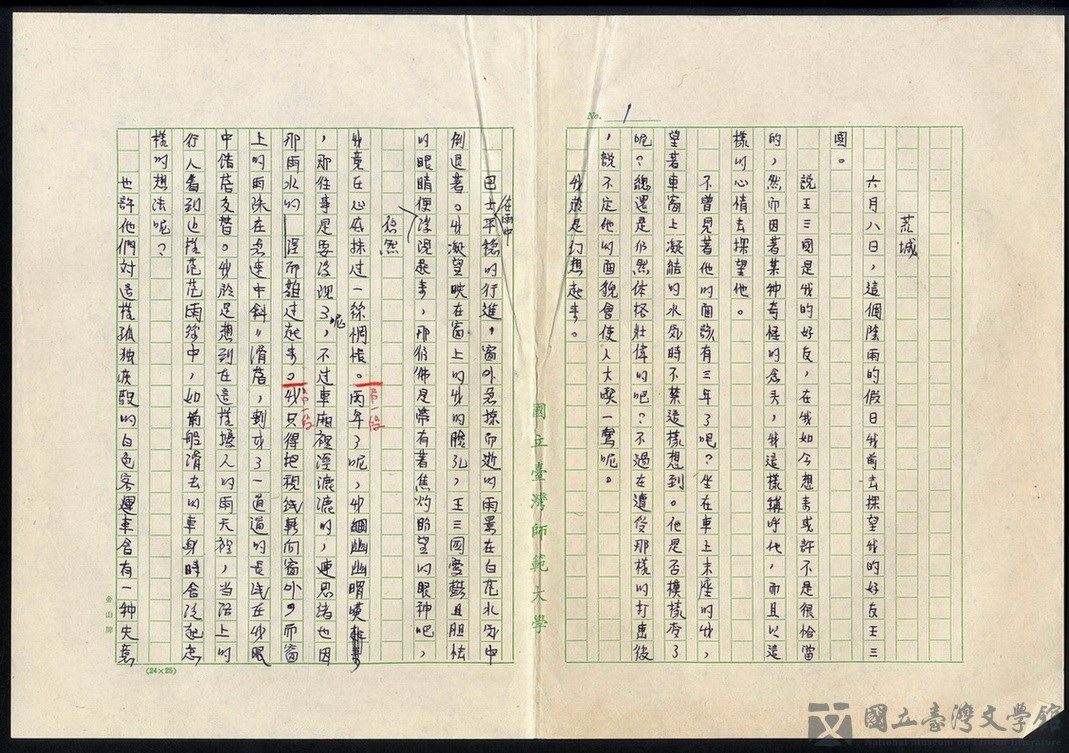 No. 1
荒城
六月八日，這個陰雨的假日我前去探望我的好友王三
國。
說王三國是我的好友，在我如今想來或許不是很恰當
的，然而因著某种奇怪的念头，我這樣稱呼他，而且以這
樣的心情去探望他。
不曾見著他的面該有三年了吧？坐在車上末座的我，
望著車窗上凝結的水氣時不禁這樣想到。他是否模樣變了
呢？總還是仍然体格壯偉的吧？不過在遭受那樣的打擊後
，說不定他的面貌會使人大喫一驚呢。
我於是幻想起來。
國立臺灣師範大學
在雨中
巴士平穩的行進，窗外急掠而逝的雨景在白茫水氣中
倒退著。我凝望映在窗上的我的臉孔，王三國憂鬱且胆怯
的眼睛便浮現起來，那彷彿是帶有著焦灼盼望的眼神吧，
倏然
我竟在心底抹过一絲惆悵。兩年了呢，我細幽幽喟嘆起來
第一段
呢
，那件事是要浮現了，不过車廂裡溼漉漉的，連思緒也因
那雨水的溼而難过起來。我只得把視线轉向窗外，而窗
第一段
上的雨珠在急速中斜斜滑落，劃成了一道道的長线在我眼
中錯落交替。我於是想到在這樣擾人的雨天裡，當路上的
行人看到迷樣茫茫雨絲中，如箭般滑去的車身時會泛起怎
樣的想法呢？
也許他們对這樣孤独疾駛的白色客運車會有一种失意
(24×25)
金山牌
國立臺灣文學館
National Museum of Taiwan Literature